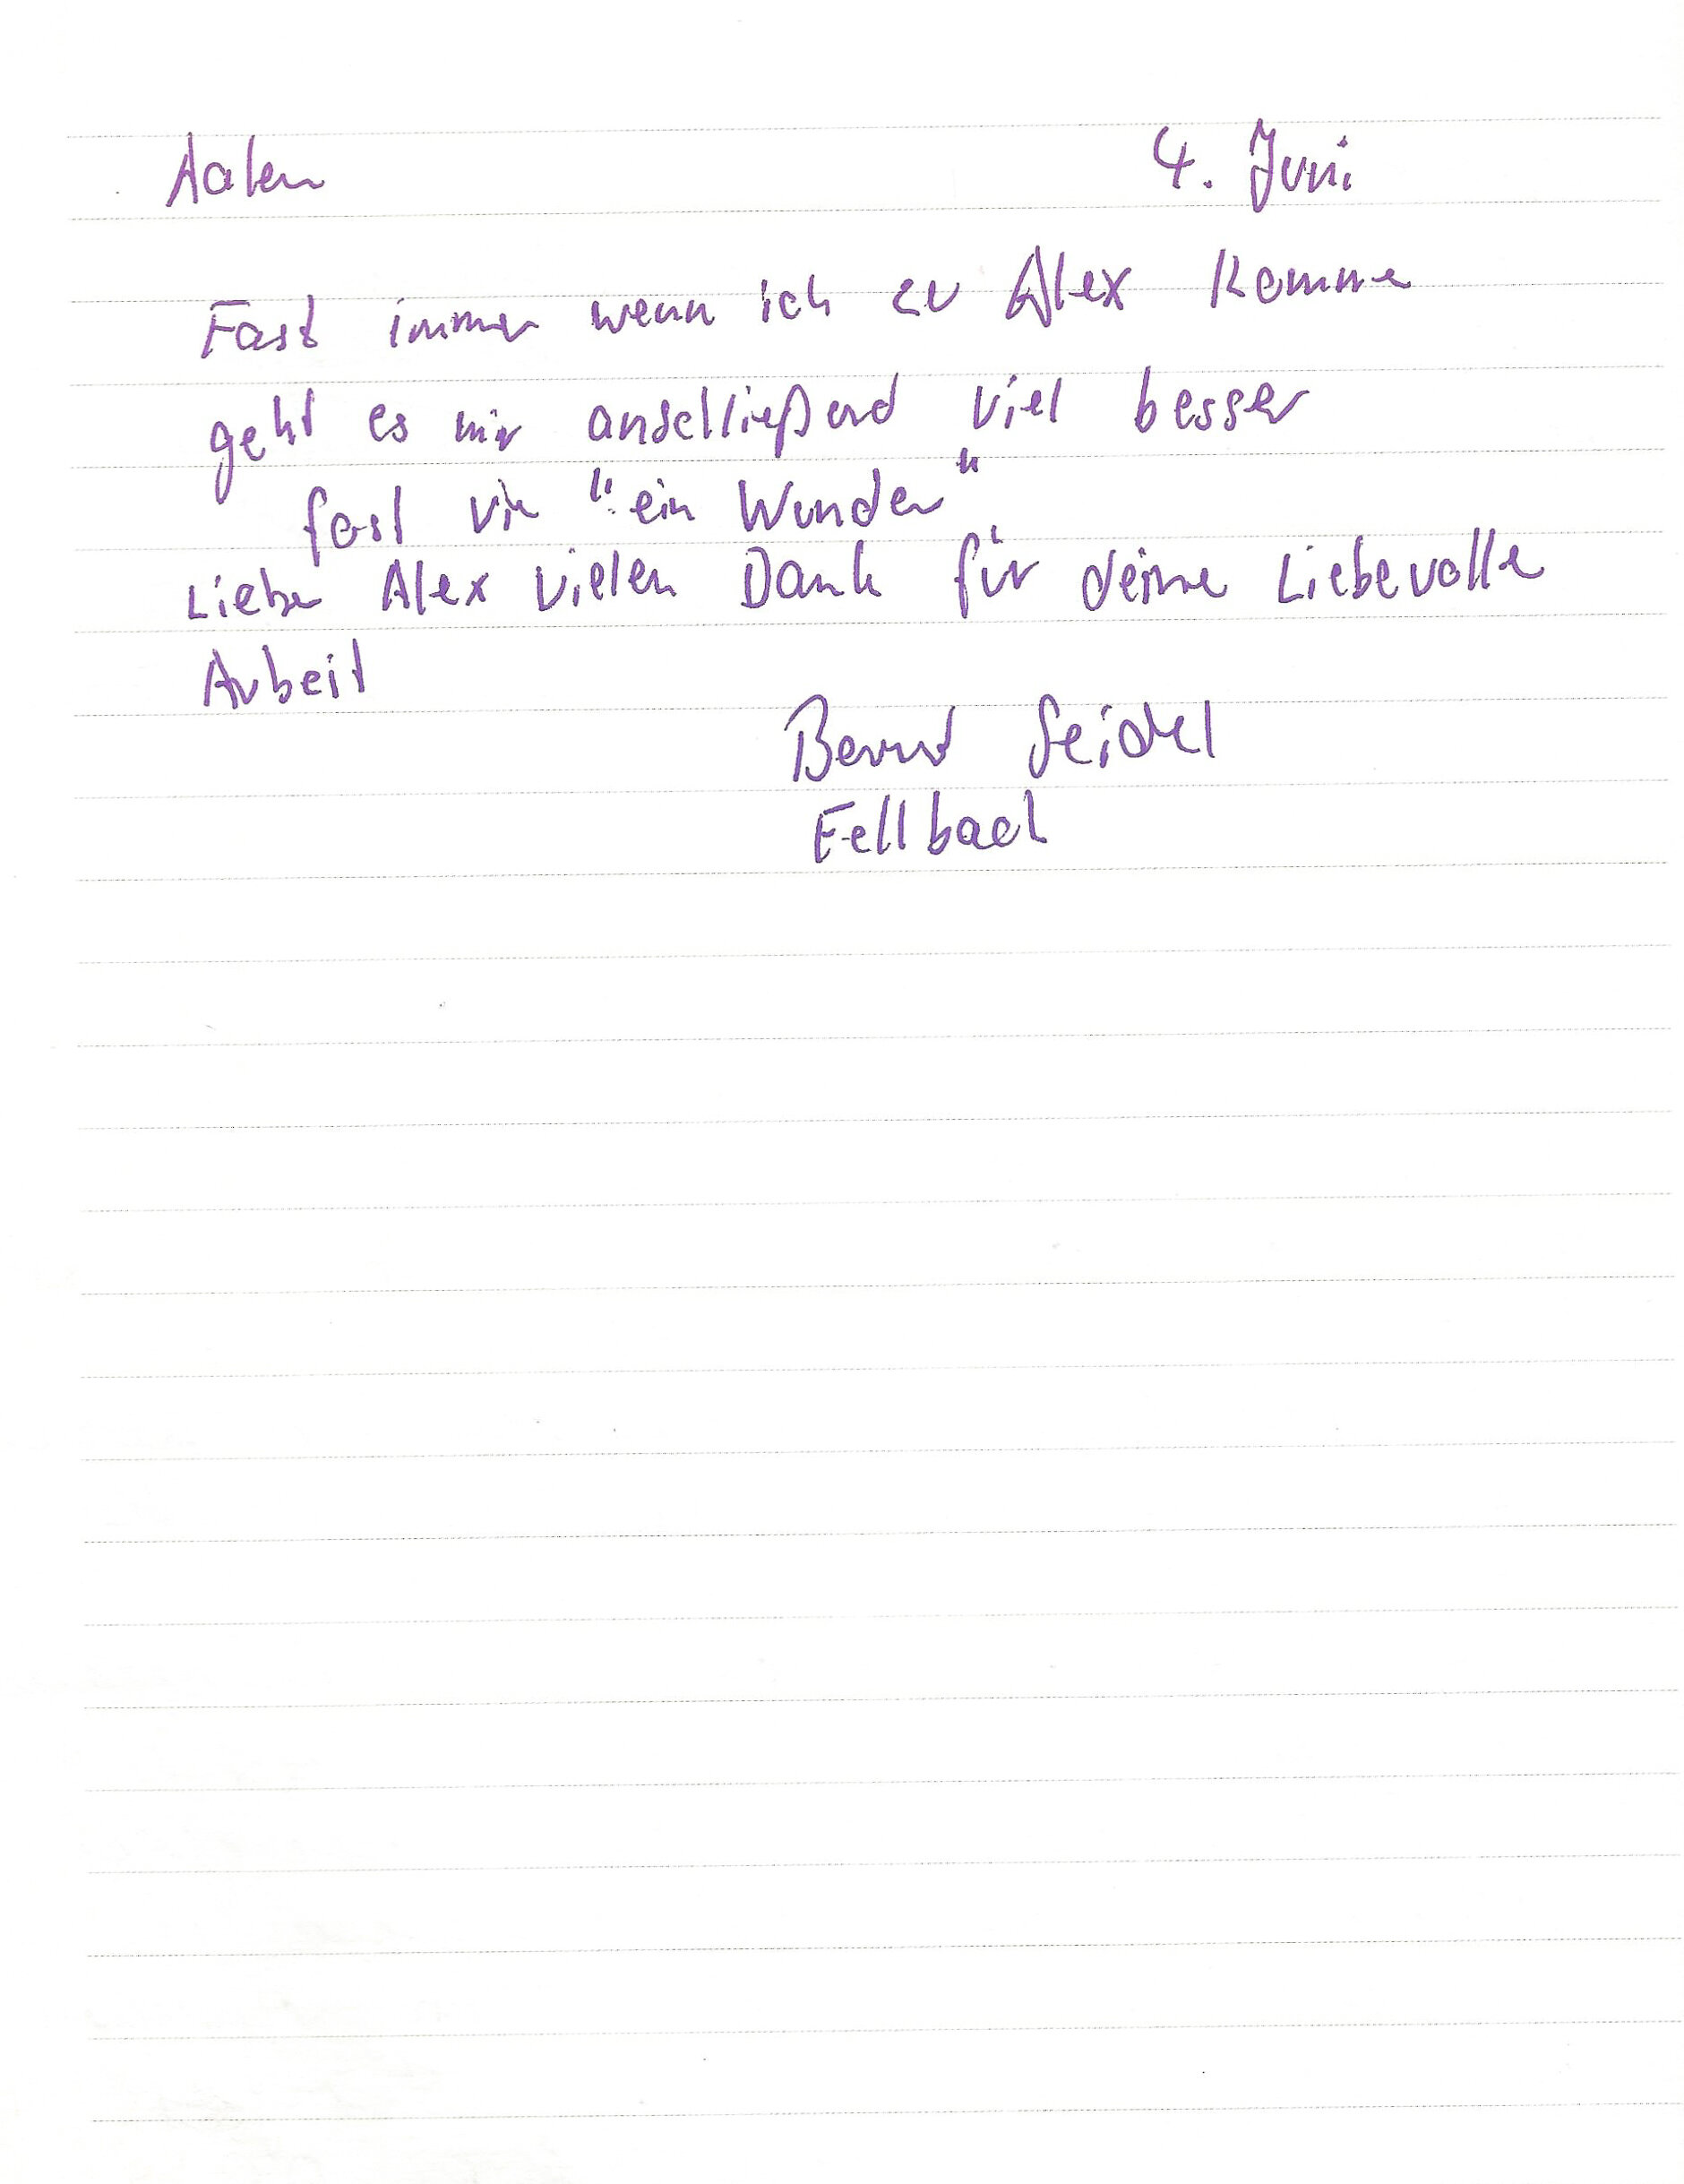 Aalen 4. Juni
Fast immer wenn ich zu Alex komme
geht es mir anschließend viel besser
fast wie "ein Wunder"
Lieber Alex vielen Dank für deine Liebevolle
Arbeit
Bernd Seidel
Fellbach